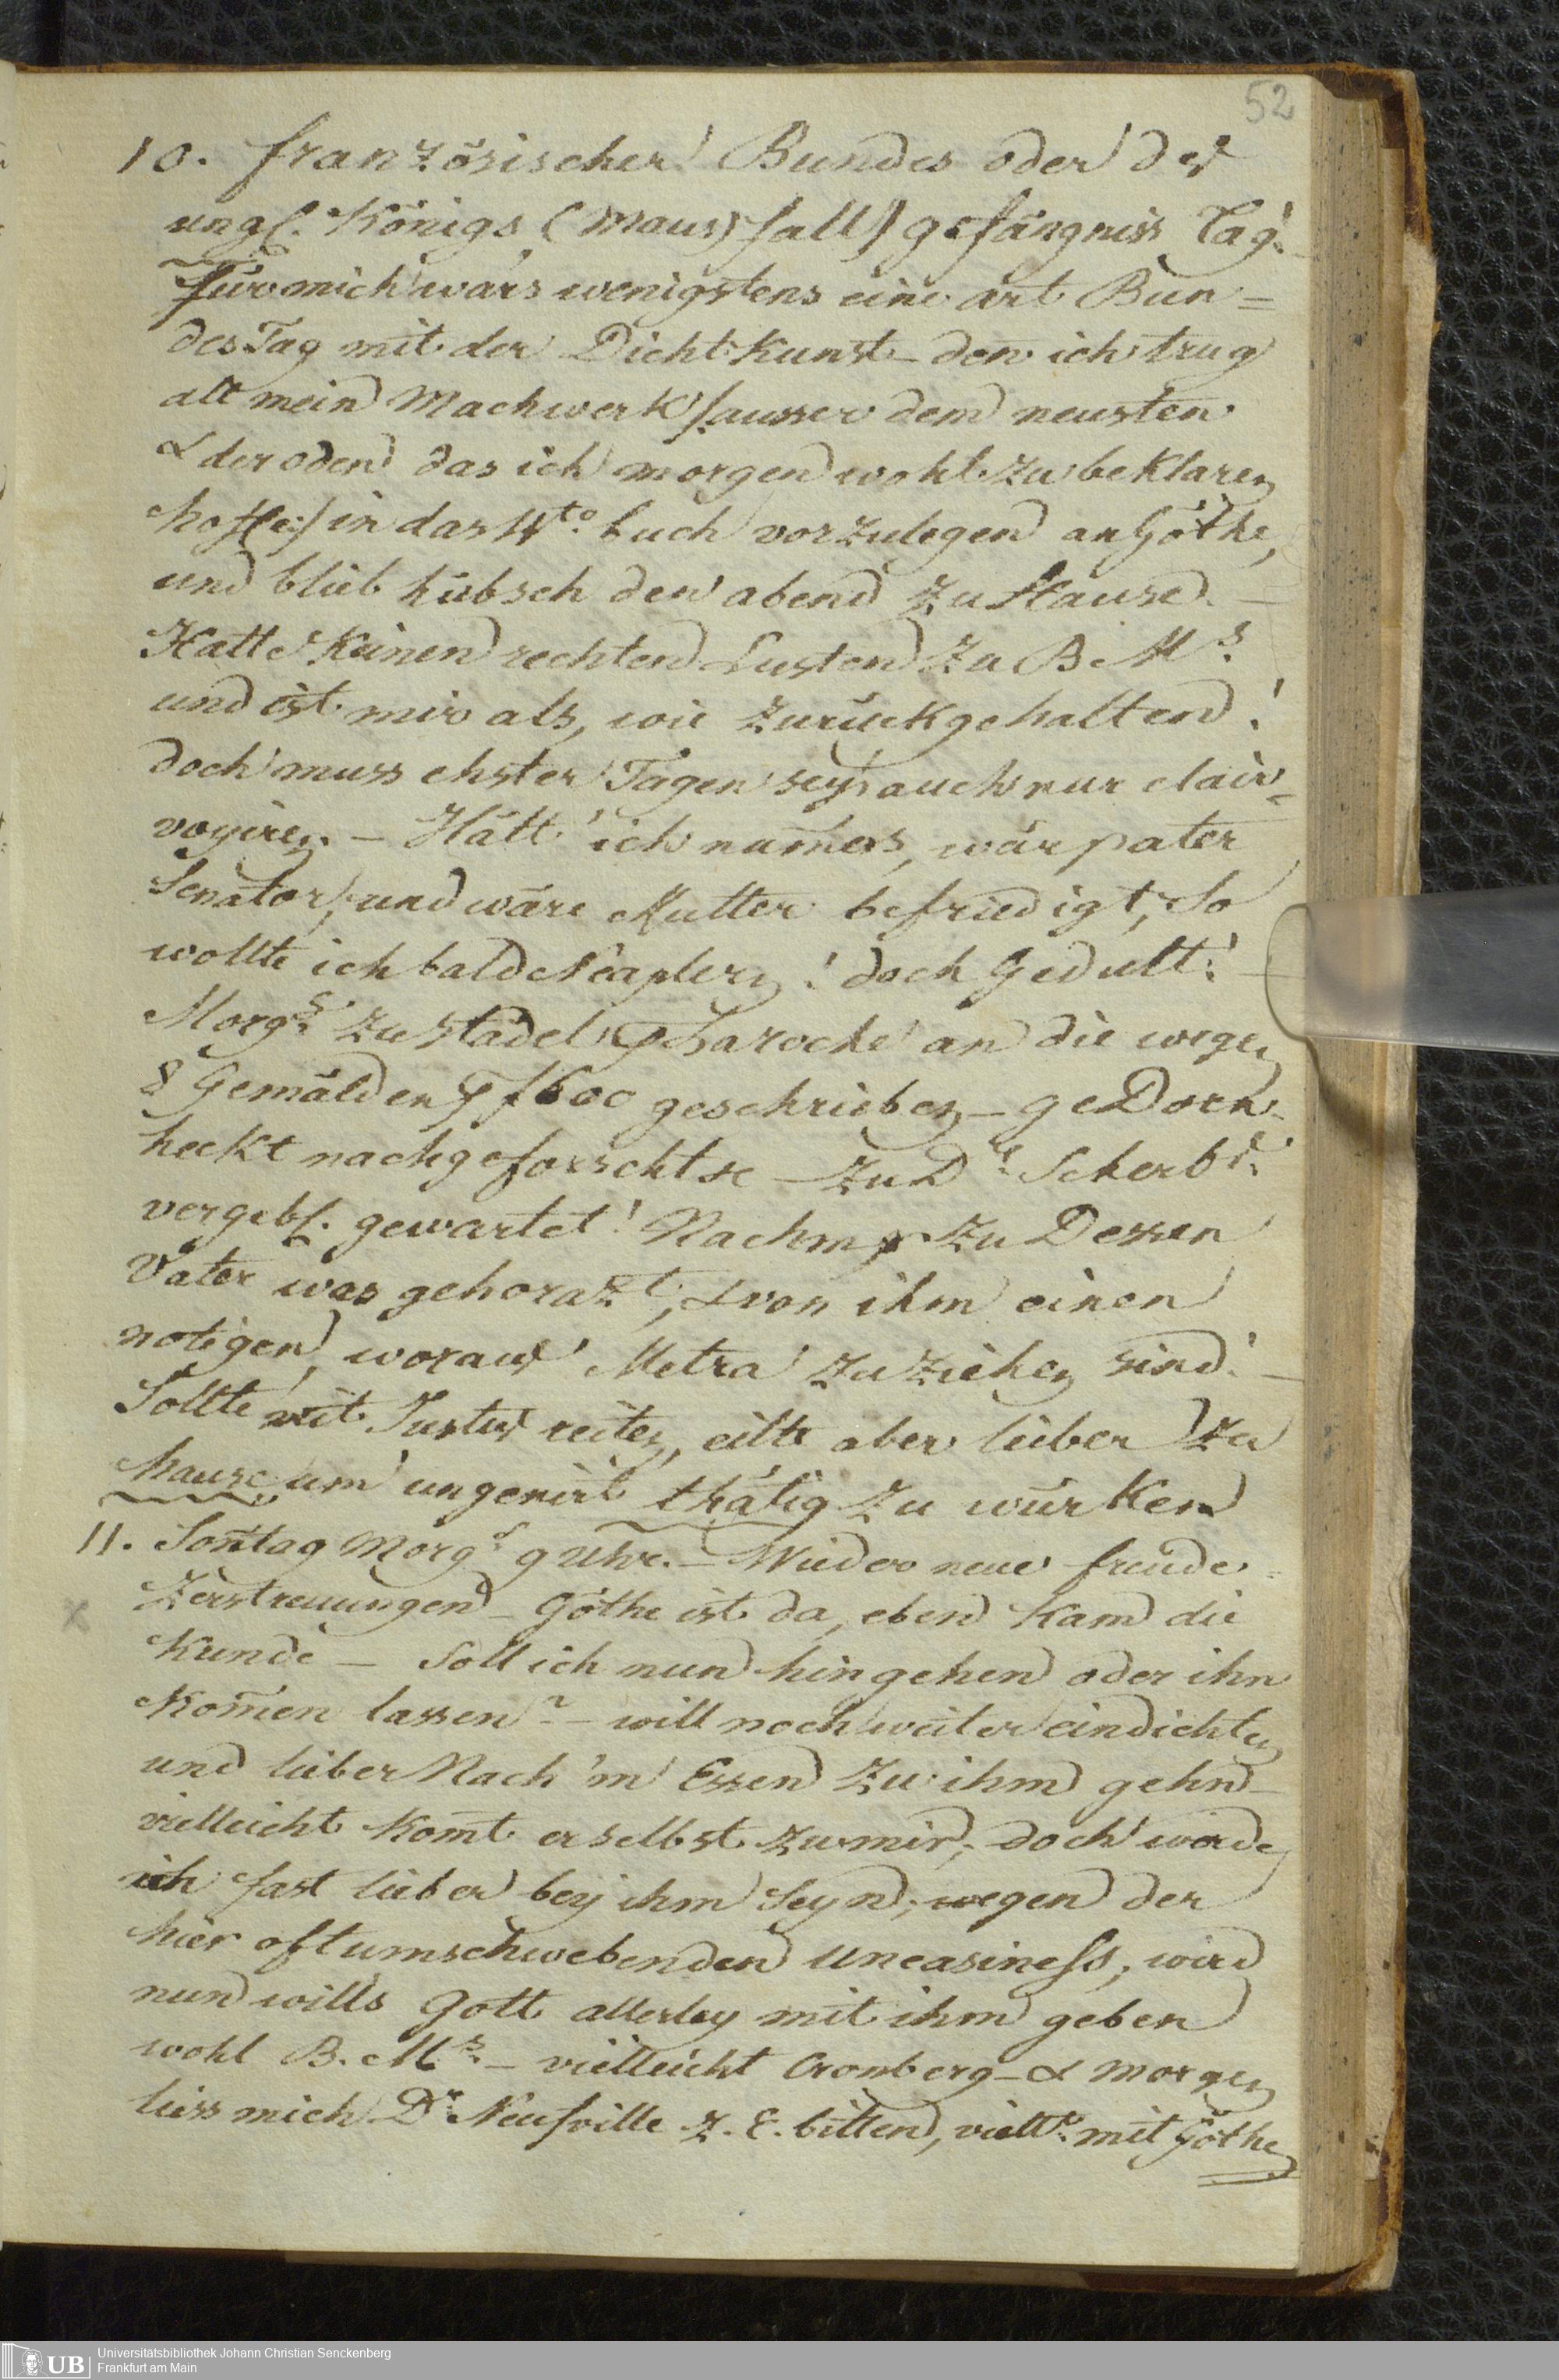 52
10. französischer Bundes oder des
ungl. Königs (Maus) fall) gefängniss Tag!
Für mich wars wenigstens eine art Bun=
des Tag mit der Dichtkunst – den ich trug
all mein Machwerk /:ausser dem neusten
& der oden das ich morgen wohl zu beklaren
hoffe:/ in das 4to buch vorzulegen an Göthe,
und blieb hübsch den abend zu Hause. –
Hatte keinen rechten Lusten zu B Ms
und ist mir als, wie zurückgehalten!
doch muss ehster Tagen seys auch nur clair=
voyiren. – Hätt' ich numers, wär pater
Senator, und wäre Mutter befriedigt, So
wollte ich bald Neaplen! doch Gedult! –
Morgs zu Städel, Laroche an die wegen
8 Gemälden f 600 geschrieben – geDorn
heckt nachgeforscht – zu D Scherb
vergebl. gewartet! Nachm zu Dessen
Vater was gehorazt, & von ihm einen
notigen, woraus Metra zu ziehen sind! –
Sollte mit Justus reiten, eilte aber lieber zu
hause um ungenirt thätig zu würken
11. Sontag Morgs 9 Uhr. – Wieder neue freude=
Zerstreuungen – Göthe ist da, eben kam die
Kunde – Soll ich nun hingehen oder ihn
Komen lassen? – will noch weiter eindichten
und lieber Nach'm Essen zu ihm gehn –
vielleicht komt er selbst zu mir, doch werde
ich fast lieber bey ihm Seyn, wegen der
hier oft umschwebenden uneasiness, wird
nun wills Gott allerley mit ihm geben
wohl B. Ms – vielleicht Cronberg – & morgen
liess mich Dr Neufville z. E. bitten, viellt mit Göthe
Universitätsbibliothek Johann Christian Senckenberg
Frankfurt am Main
UB